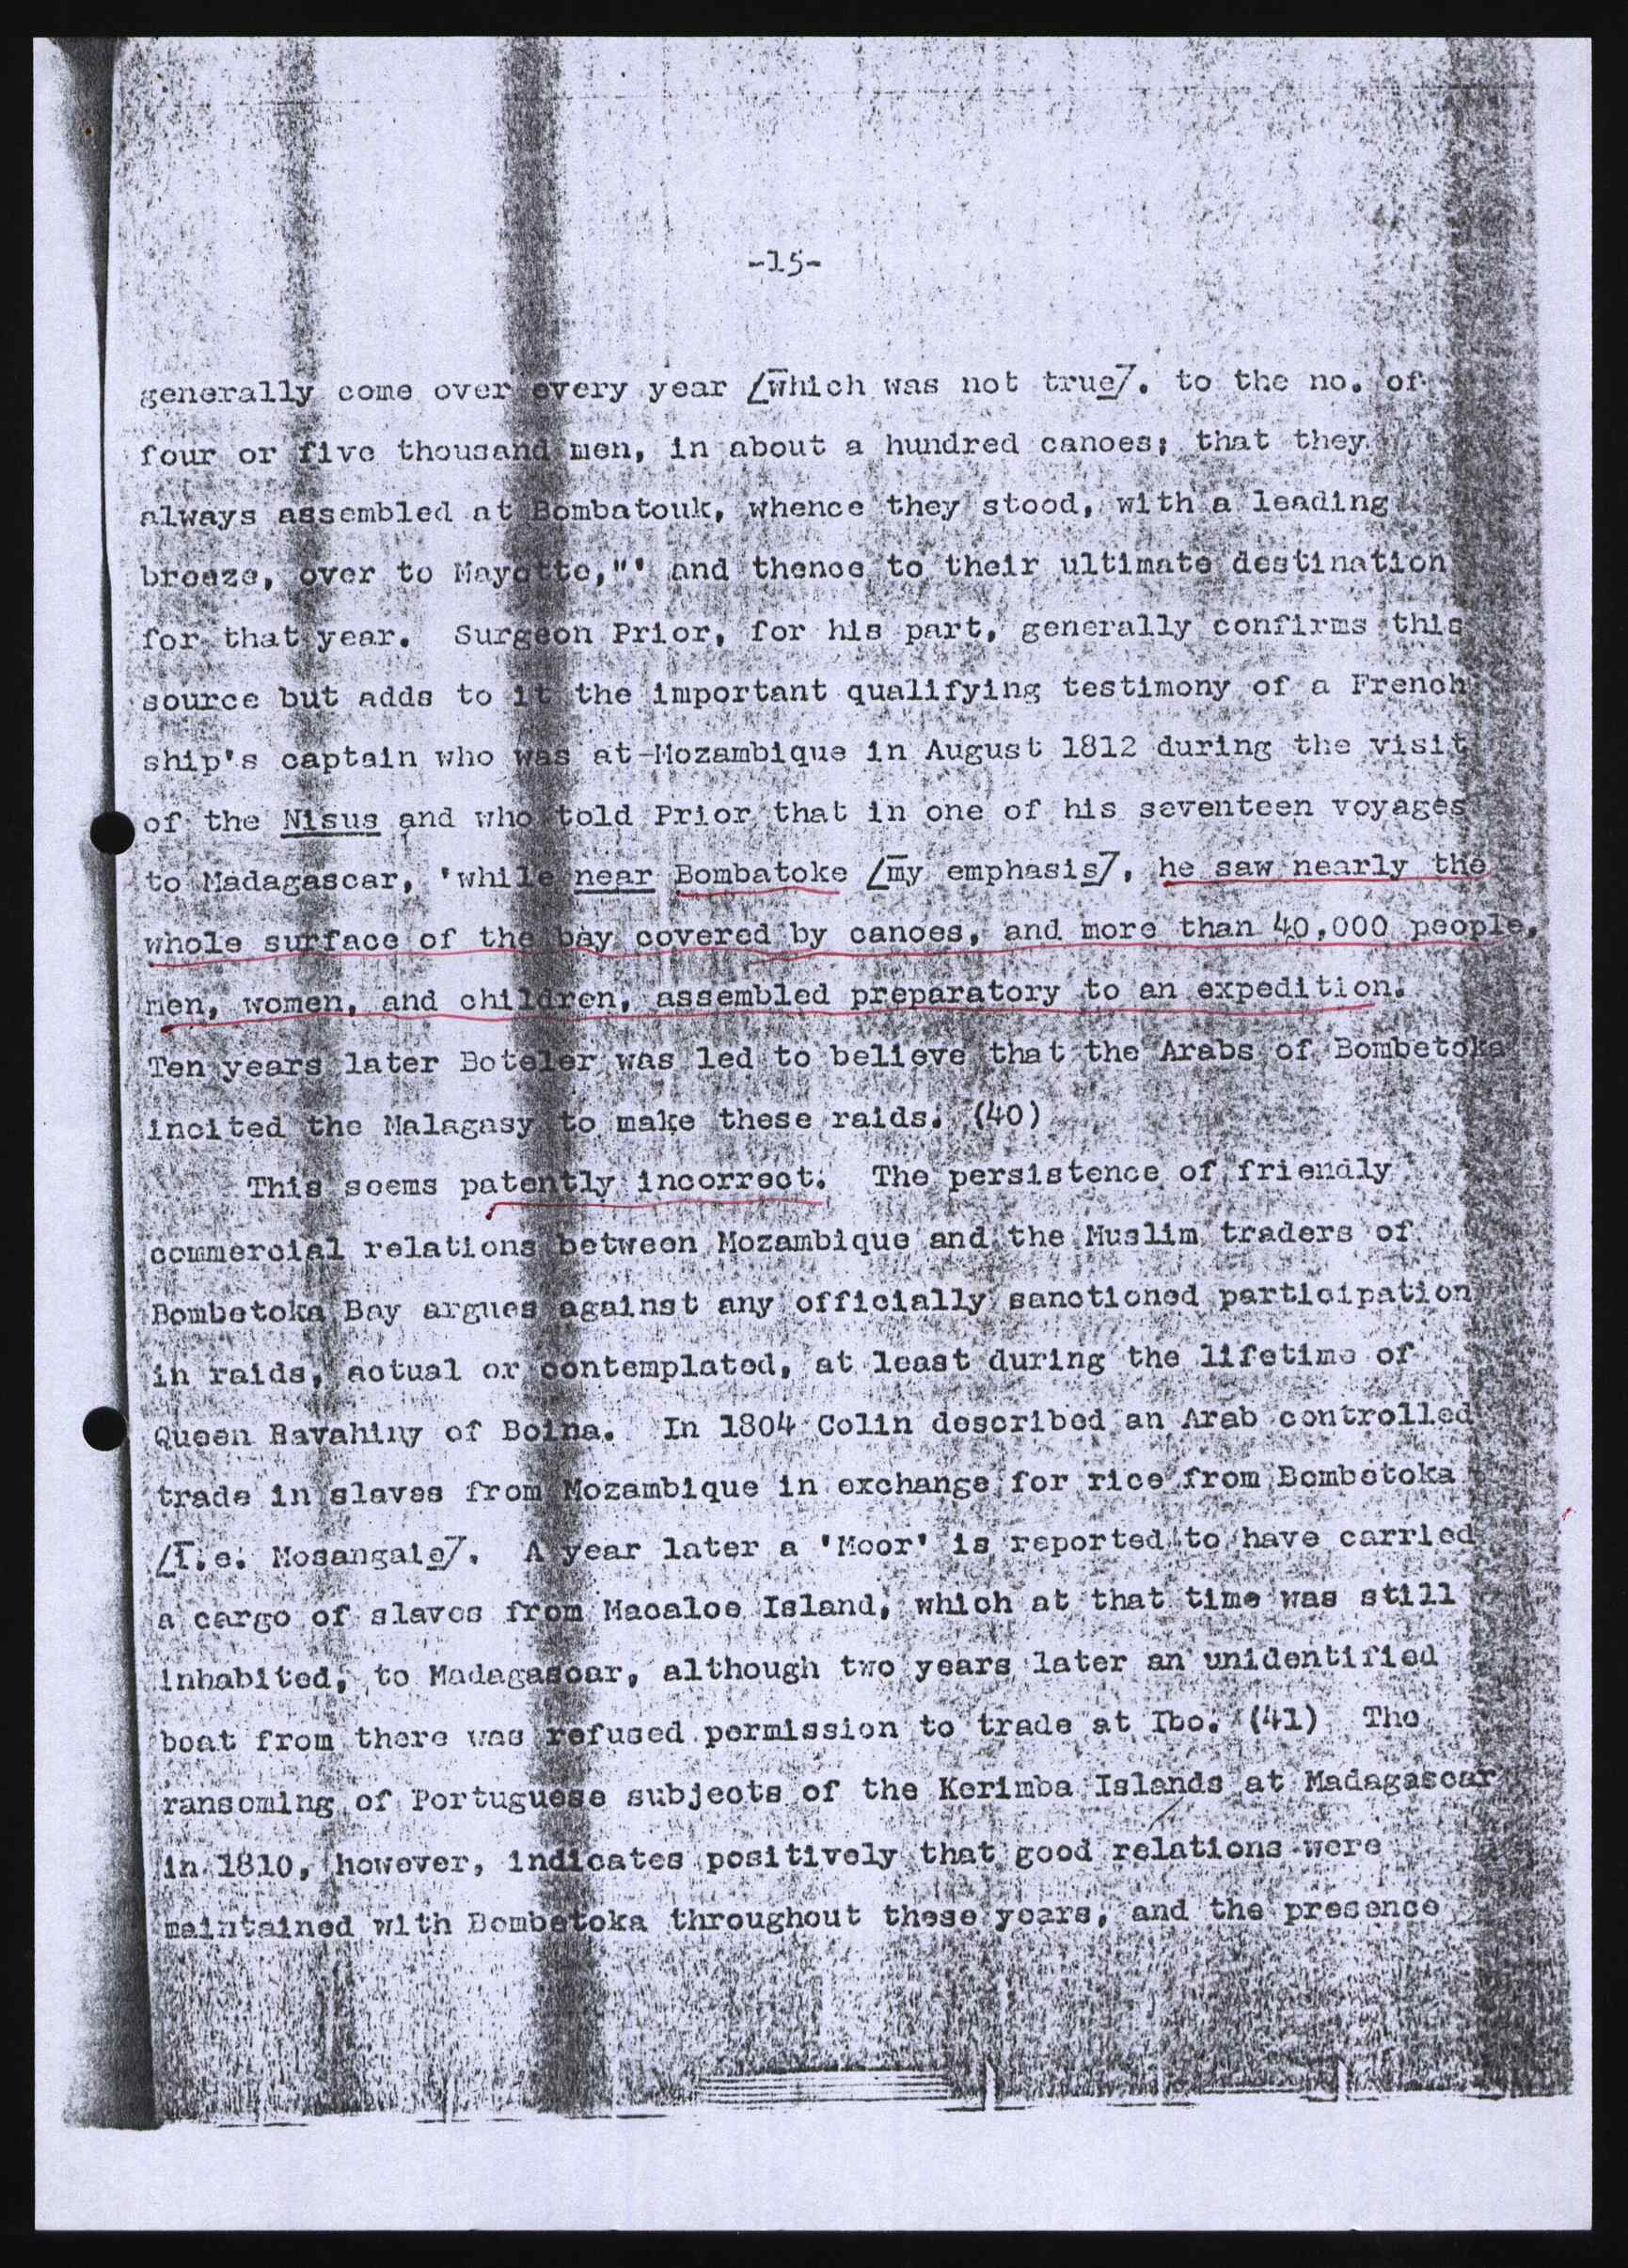 -15-
generally come over every year [which was not true]. to the no. of
four or five thousand men, in about a hundred canoes; that they
always assembled at Bombatouk, whence they stood, with a leading
breeze, over to Mayotte,"' and thence to their ultimate destination
for that year. Surgeon Prior, for his part, generally confirms this
source but adds to it the important qualifying testimony of a French
ship's captain who was at Mozambique in August 1812 during the visit
of the Nisus and who told Prior that in one of his seventeen voyages
to Madagascar, 'while near Bombatoke [my emphasis], he saw nearly the
whole surface of the bay covered by canoes, and more than 40,000 people,
men, women, and children, assembled preparatory to an expedition.
Ten years later Boteler was led to believe that the Arabs of Bombetoka
incited the Malagasy to make these raids. (40)
This seems patently incorrect. The persistence of friendly
commercial relations between Mozambique and the Muslim traders of
Bombetoka Bay argues against any officially sanctioned participation
in raids, actual or contemplated, at least during the lifetime of
Queen Ravahiny of Boina. In 1804 Colin described an Arab controlled
trade in slaves from Mozambique in exchange for rice from Bombetoka
[i.e. Mosangaie]. A year later a 'Moor' is reported to have carried
a cargo of slaves from Macaloe Island, which at that time was still
inhabited, to Madagascar, although two years later an unidentified
boat from there was refused permission to trade at Ibo. (41) The
ransoming of Portuguese subjects of the Kerimba Islands at Madagascar
in 1810, however, indicates positively that good relations were
maintained with Bombetoka throughout these years, and the presence